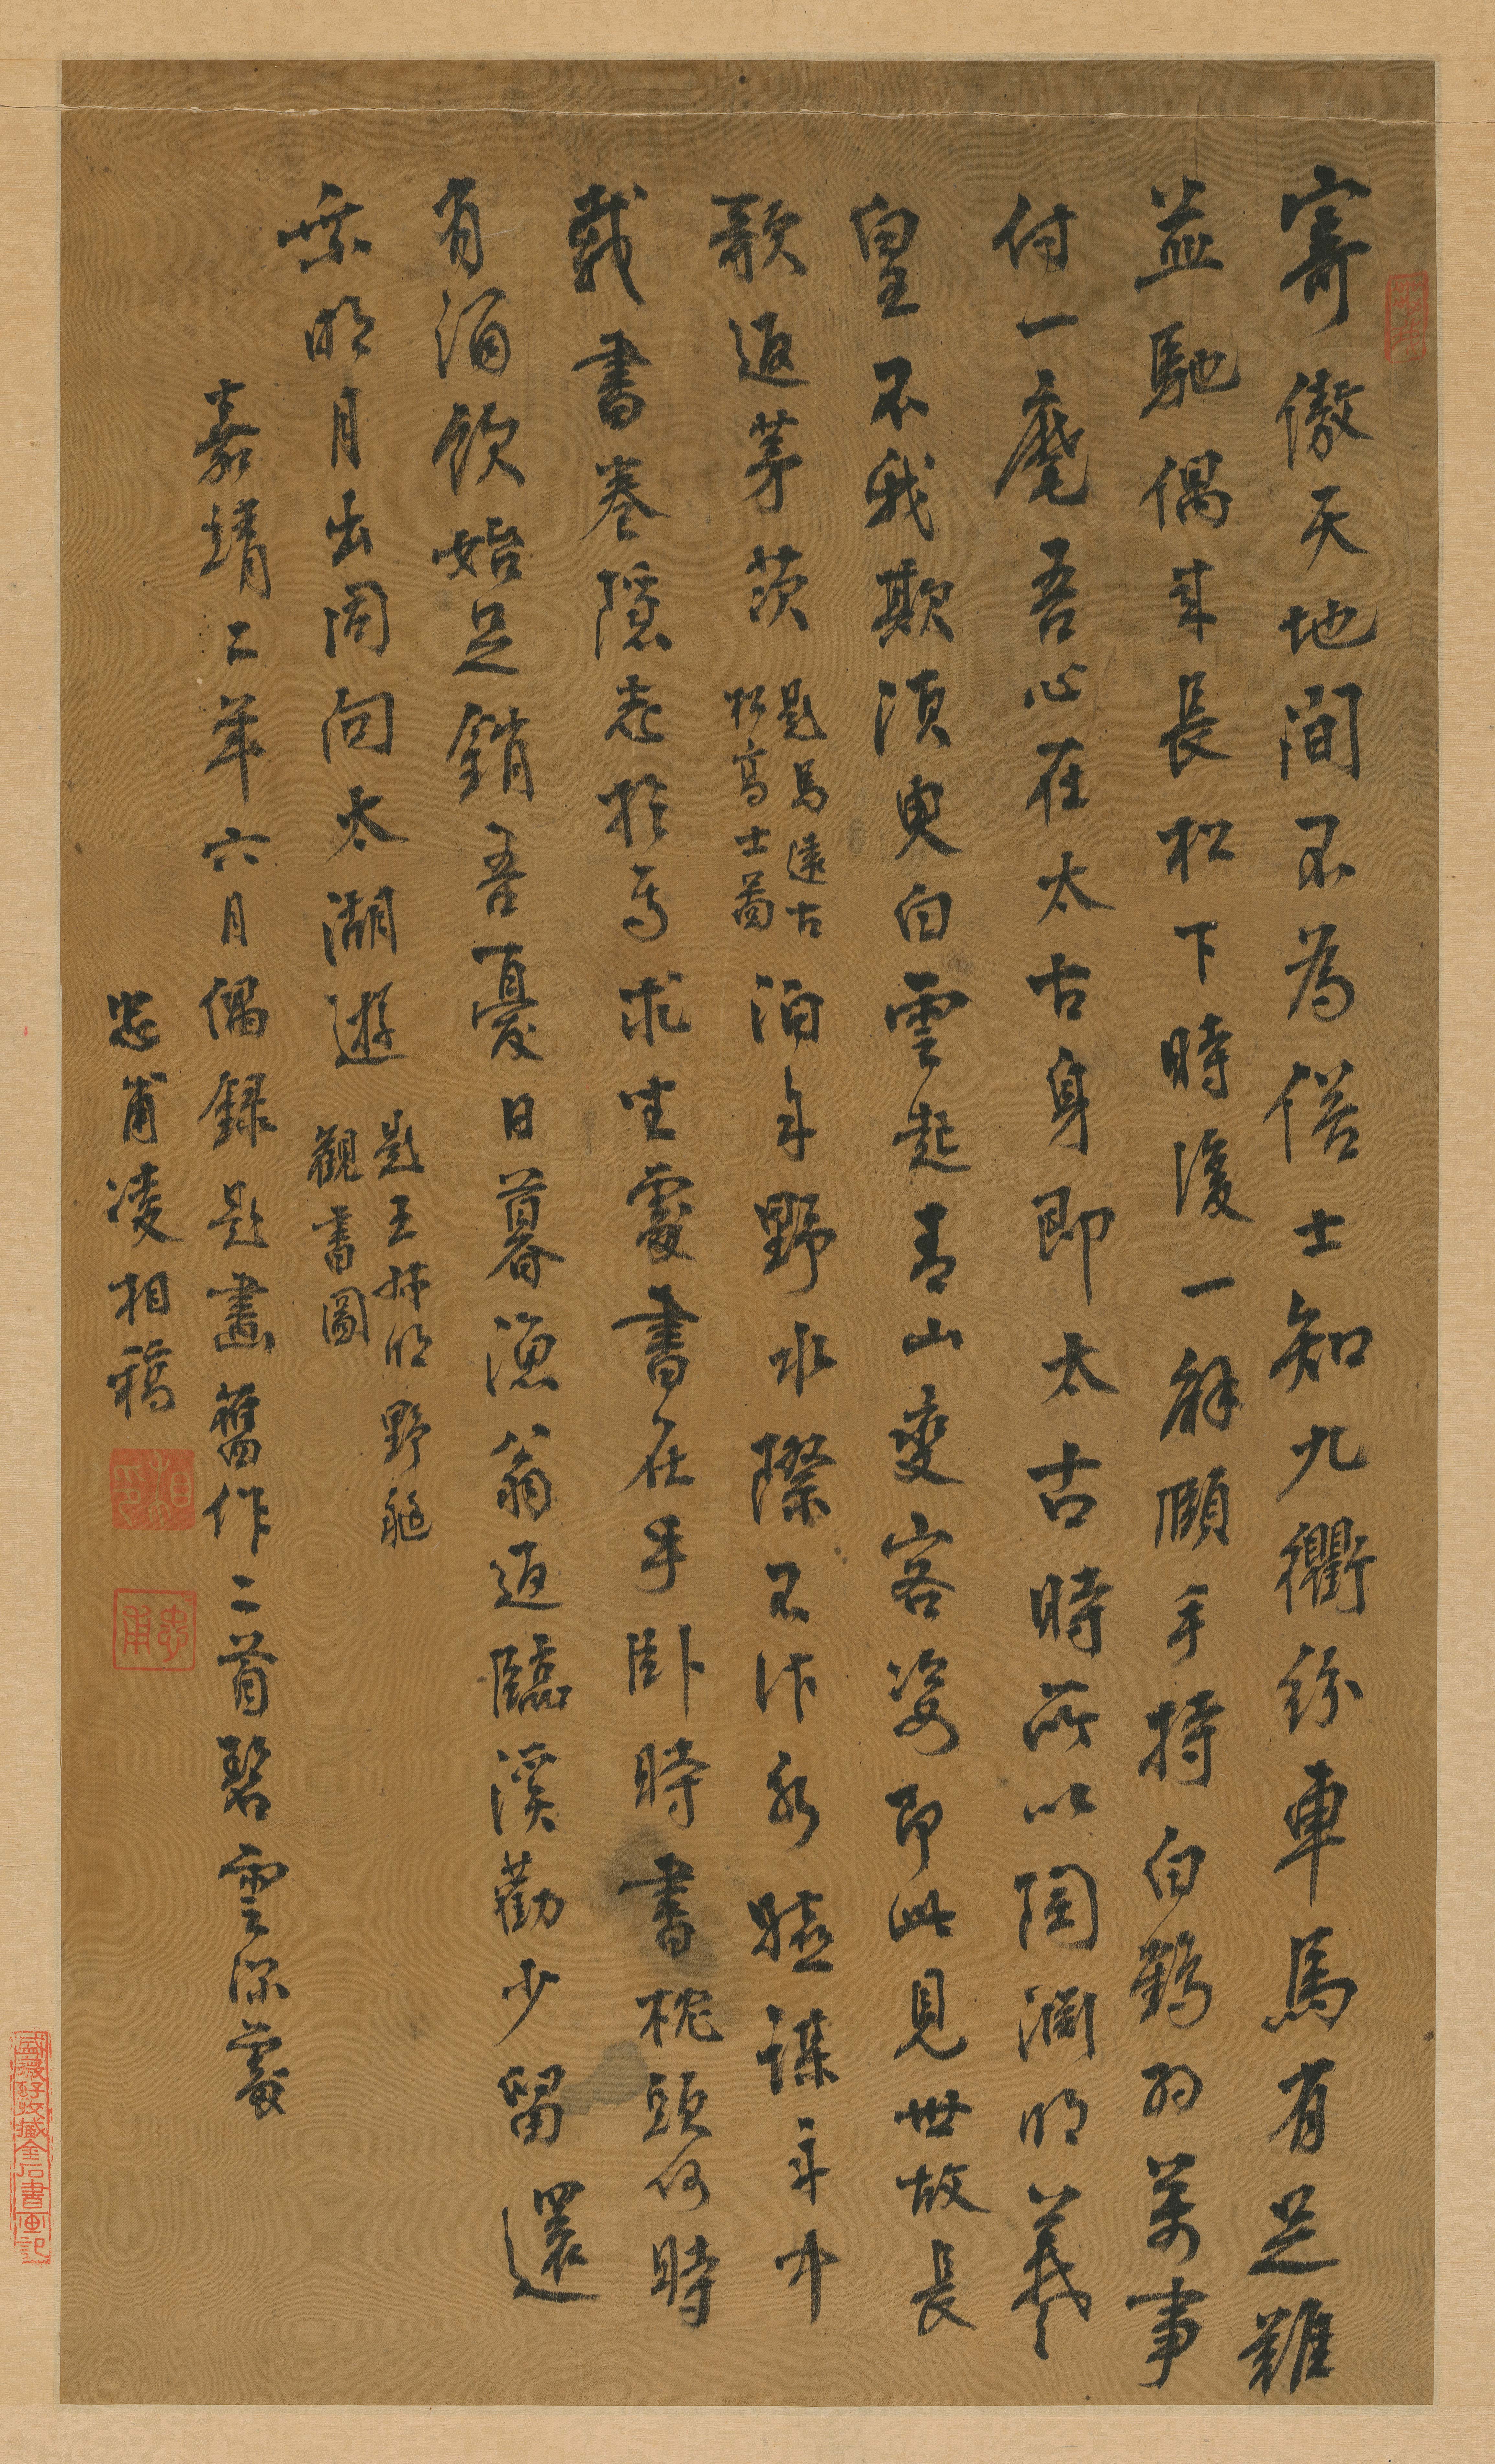 寄傲天地間不為俗士知九衢紛車馬有足難
並馳偶來長松下時復一解頤手持白鶴羽萬事
付一麾吾心在太古身即太古時所以陶淵明羲
皇不我欺須臾白雲起青山變容姿即此見世故長
歌返茅茨
題馬遠古
松高士圖
泊舟野水際不作新驢謀舟中
載書卷隱志於焉求坐處書在手臥時書枕頭何時
有酒飲始足銷吾憂日暮漁翁返臨溪勸少留還
乘明月出同向太湖遊
題王叔明野艇
觀書圖
嘉靖二年六月偶錄題畫舊作二首碧雲深處
忠甫凌相稿
相印
忠甫
盛齋好收藏金石書画記